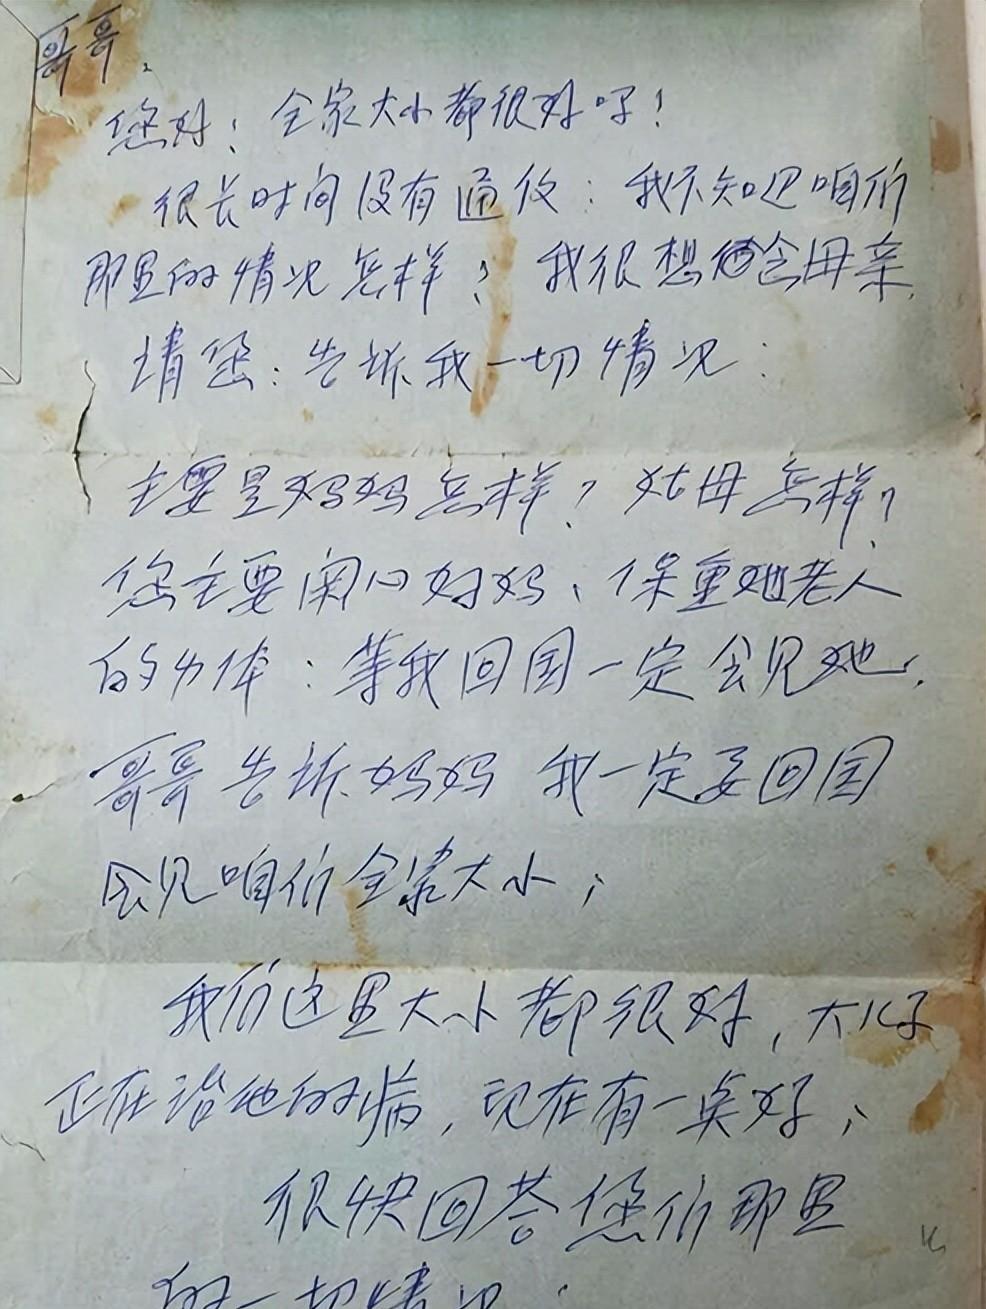 哥哥.
您好! 全家大小都很好吗!
很长时间没有通信: 我不知道咱们
那里的情况怎样? 我很想念母亲.
请您: 告诉我一切情况:
主要是妈妈怎样? 姑母怎样?
您主要关心妈妈、保重她老人
的身体: 等我回国一定会见她.
哥哥告诉妈妈 我一定要回国
会见咱们全家大小;
我们这里大小都很好, 大儿子
正在治他的病, 现在有一点好;
很快回答您们那里
的一切情况: